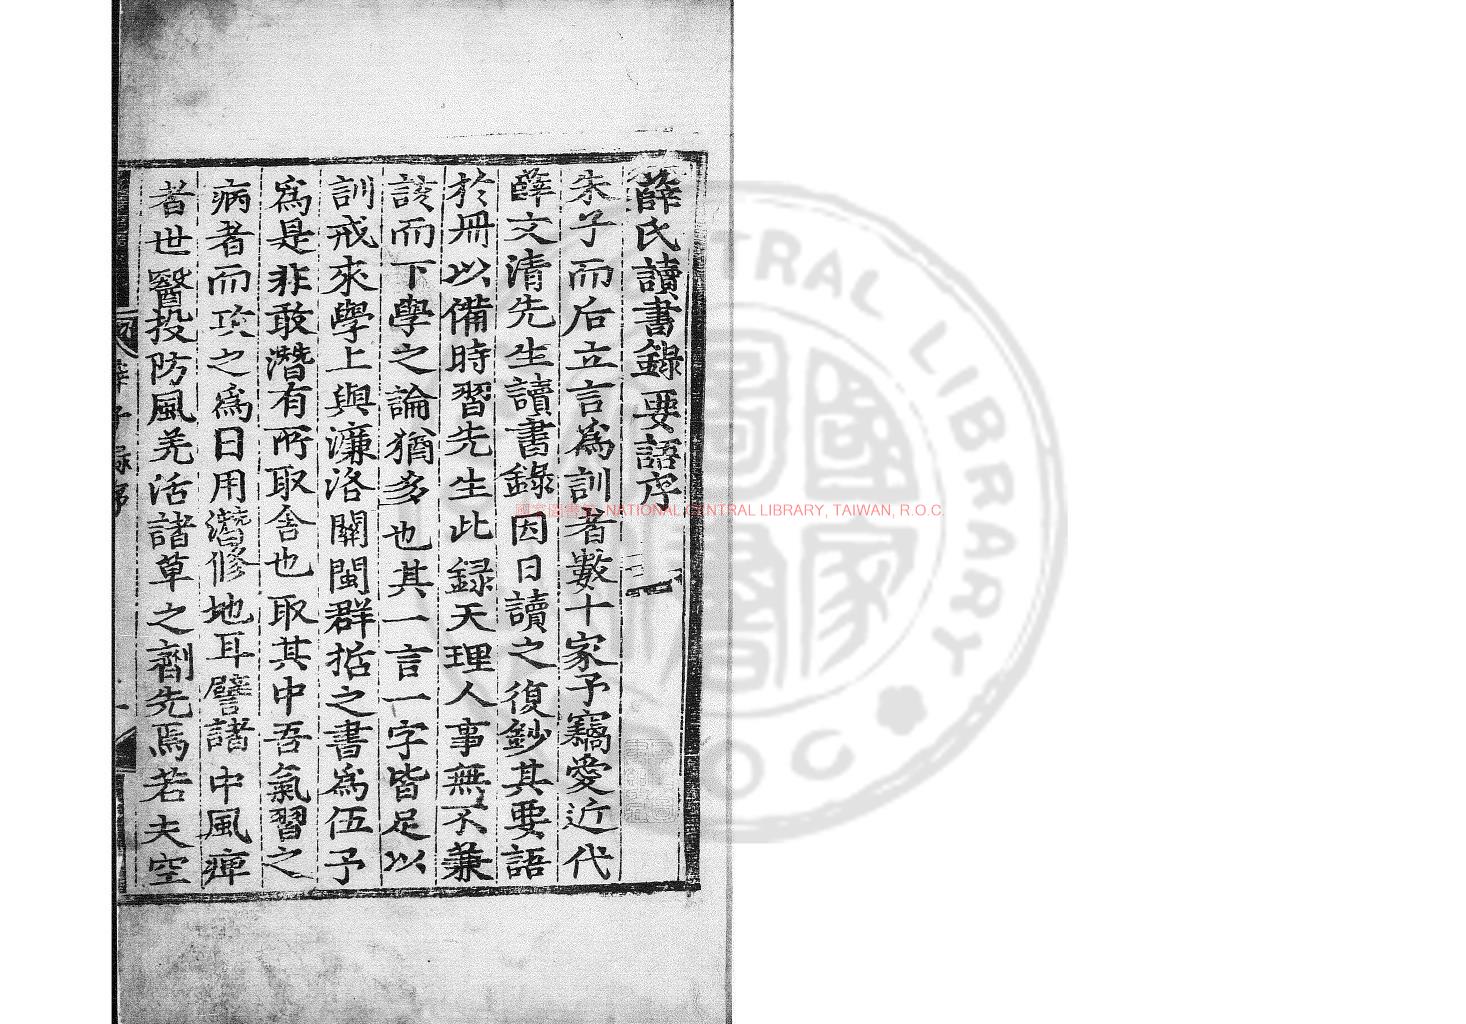 薛氏讀書錄要語序
朱子而后立言為訓者數十家予竊愛近代
薛文清先生讀書錄因日讀之復鈔其要語
於冊以備時習先生此録天理人事無不兼
該而下學之論猶多也其一言一字皆足以
訓戒來學上與濂洛關閩群括之書為伍予
為是非敢潛有所取舍也取其中吾氣習之
病者而攻之為日用潛修地耳譬諸中風痺
者世醫投防風羌活諸草之劑先焉若夫空
薛子録序
一
國家圖書館, NATIONAL CENTRAL LIBRARY, TAIWAN, R.O.C.